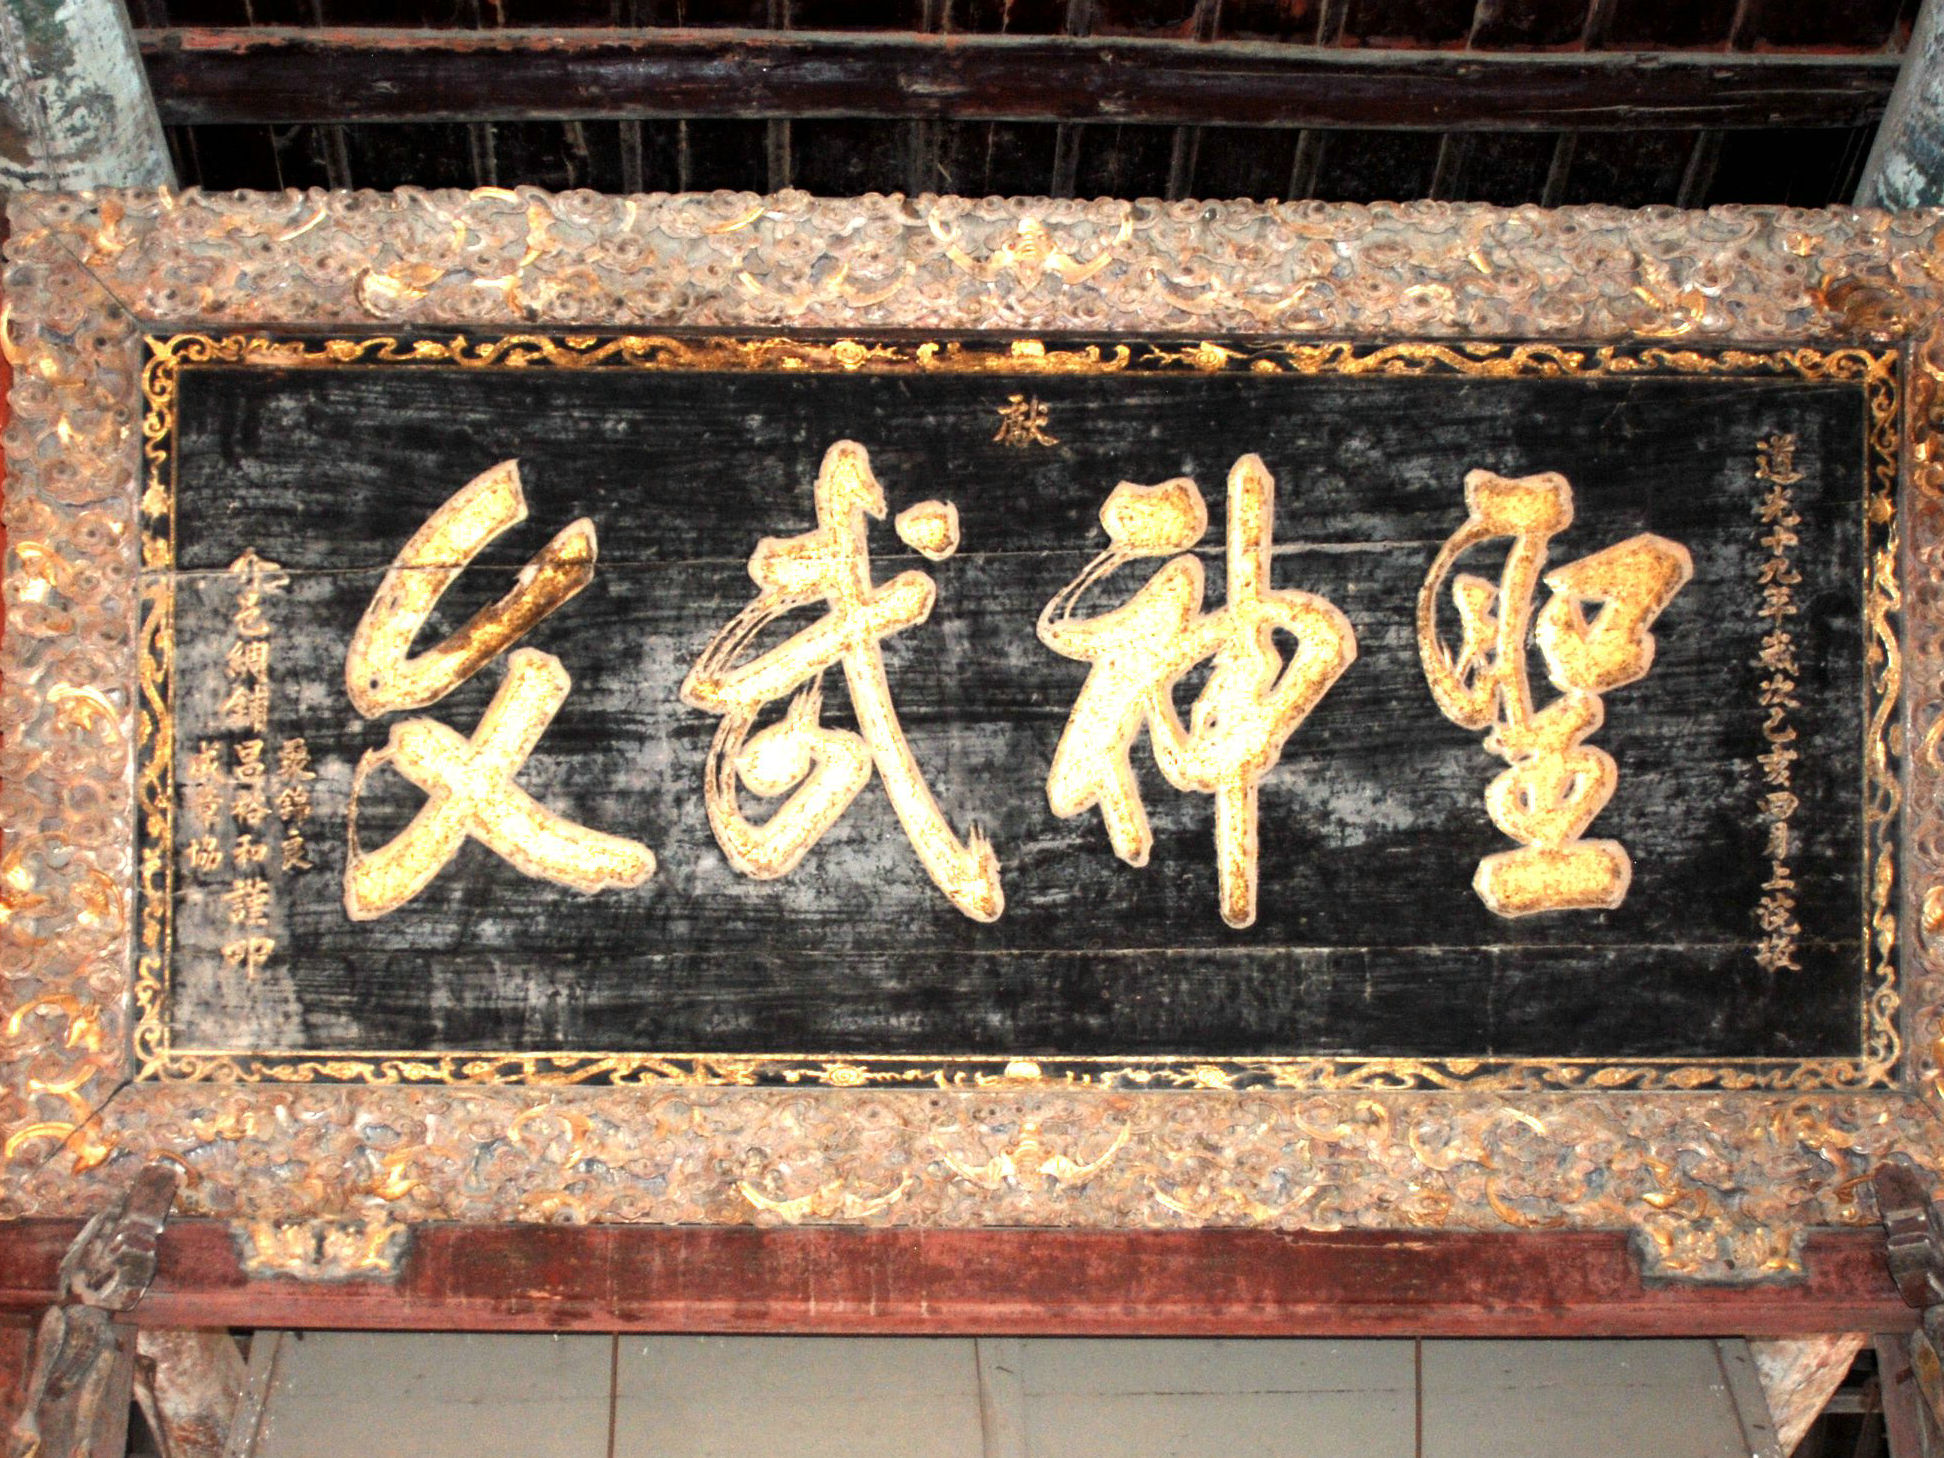 道光十九年歲次己亥四月上浣敬
獻
聖神武文
邑綢鋪
聚錦良
昌裕和
協
謹叩